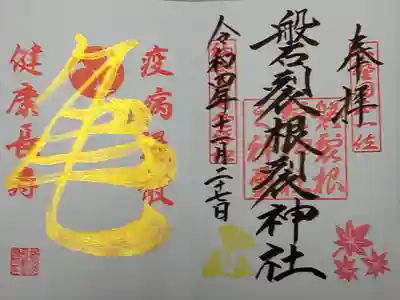 奉拝
磐裂根裂神社
令和四年十一月二十七日
疫病退散
亀
健康長寿